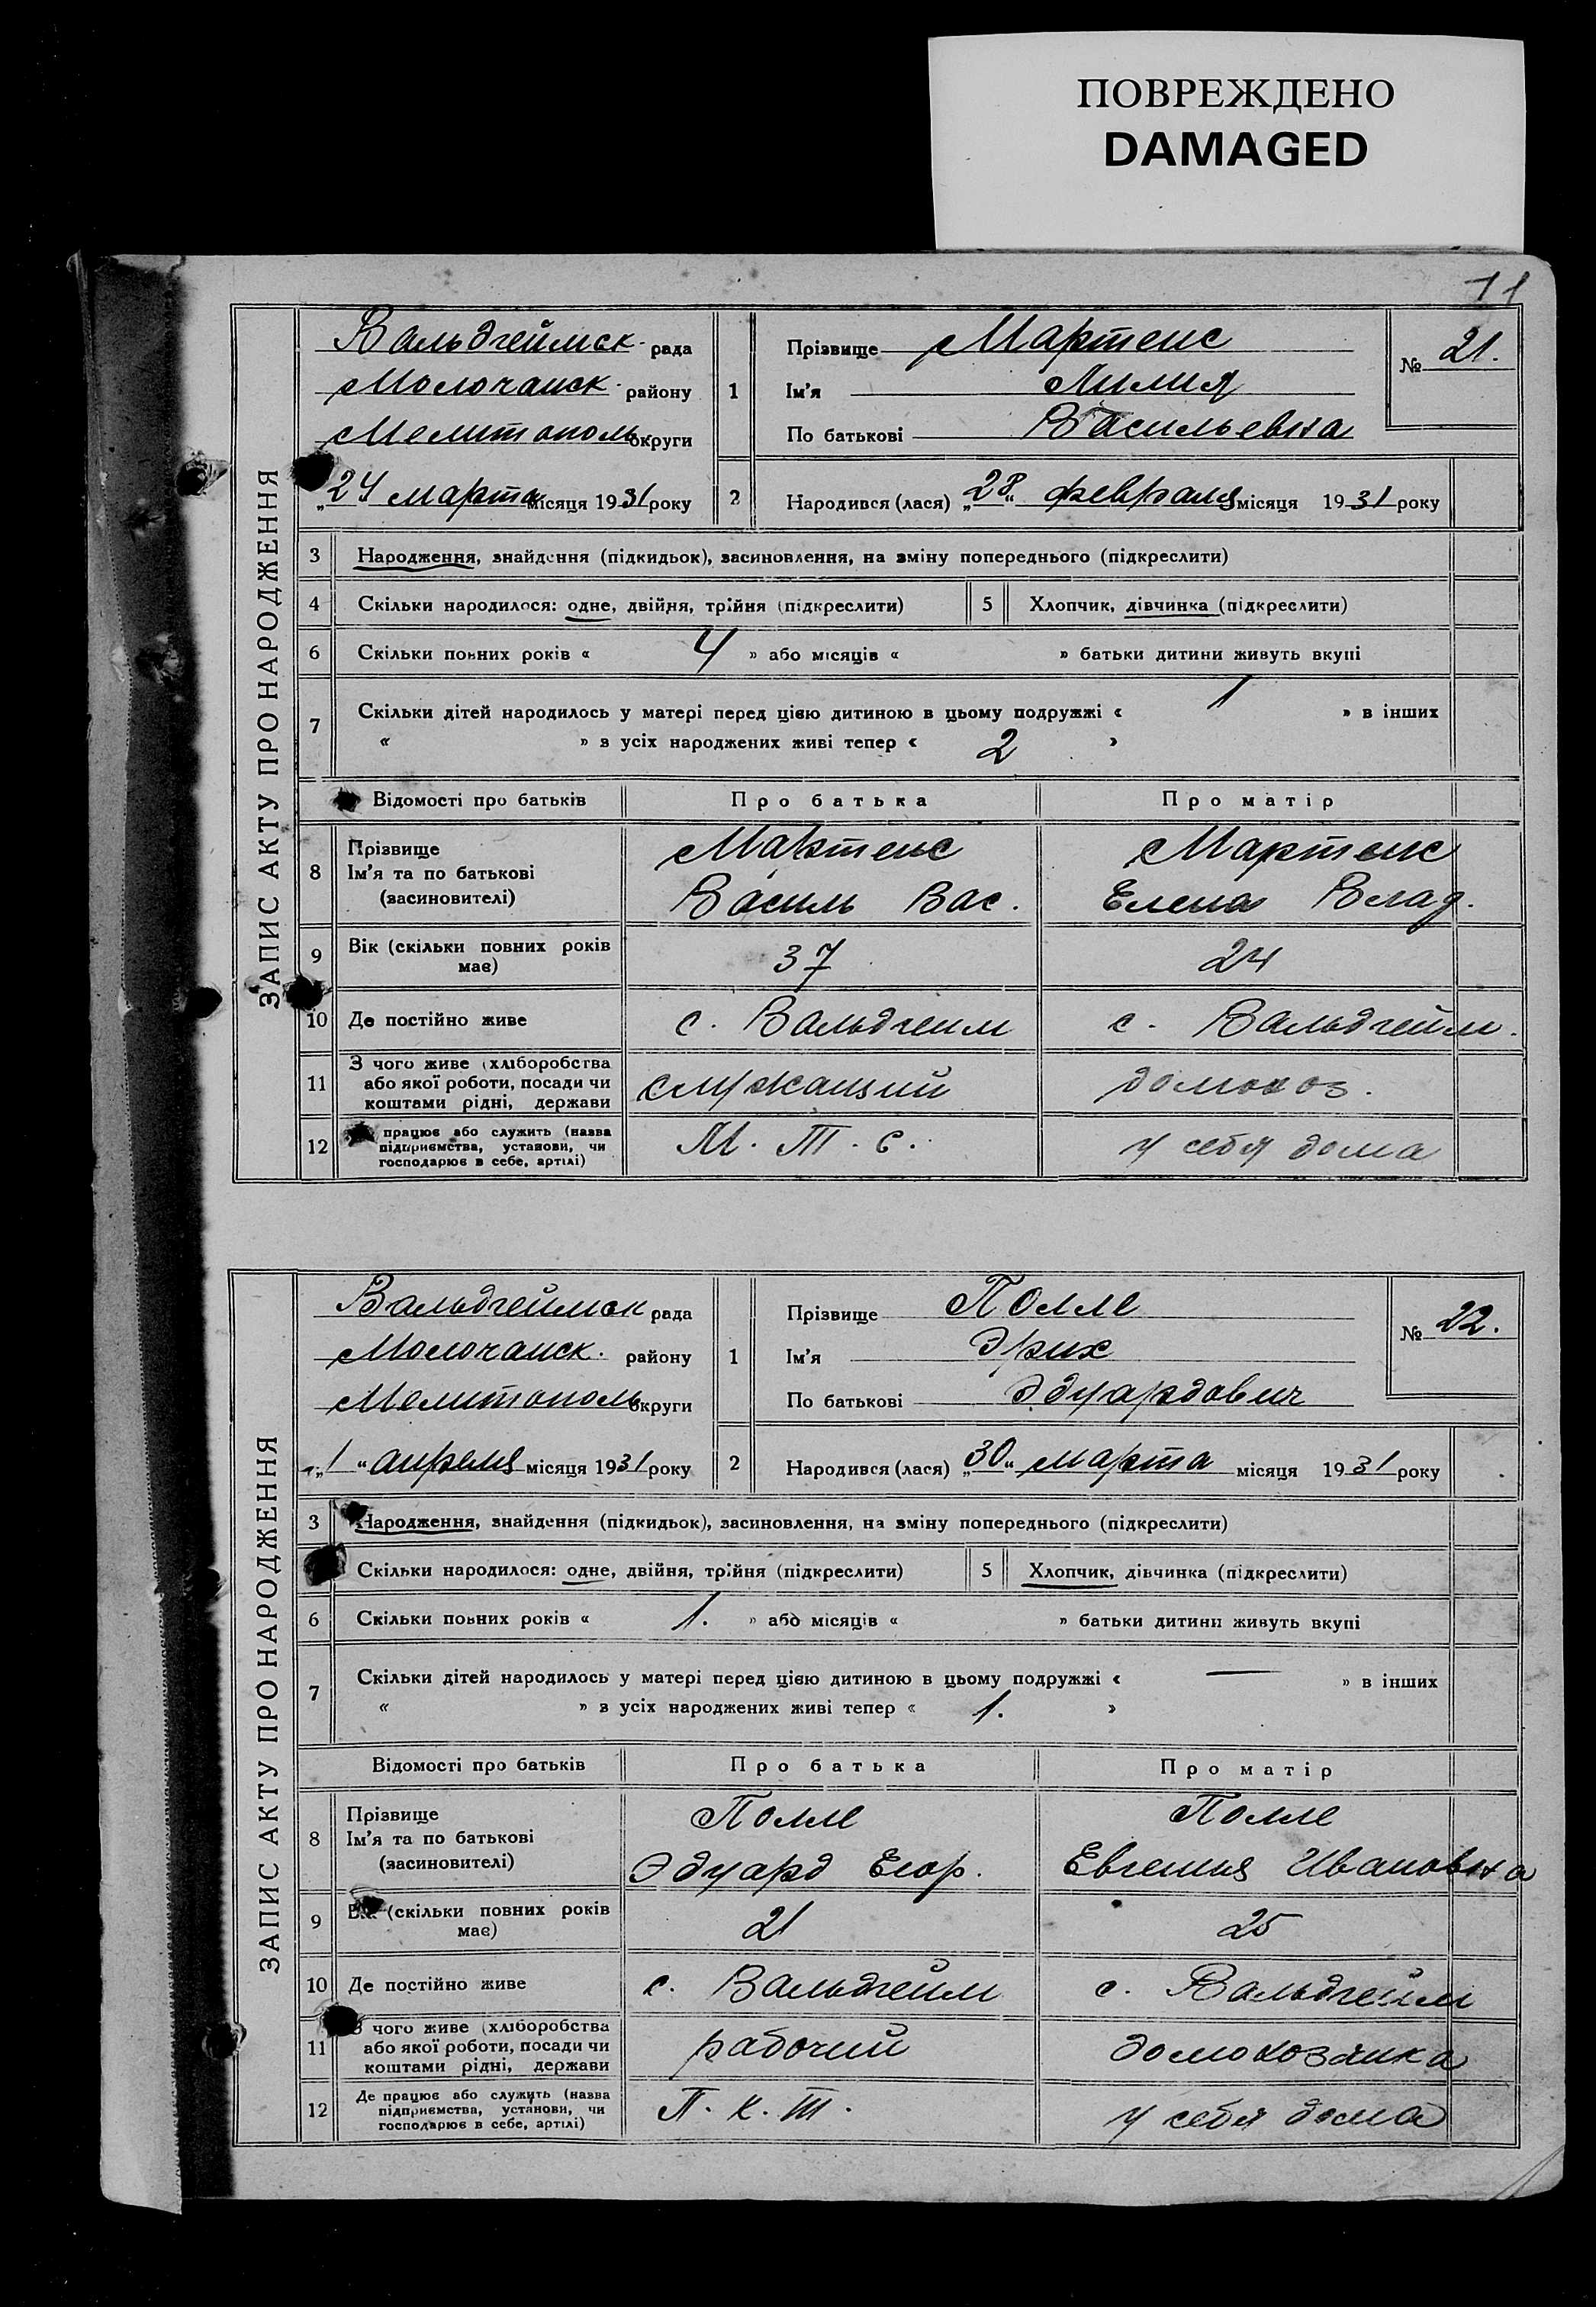 ПОВРЕЖДЕНО
DAMAGED
11
ЗАПИС АКТУ ПРО НАРОДЖЕННЯ
Вальдгеймск. рада
Молочанск. району
Мелитополь округи
„24 марта місяця 1931 року
1
Прізвище Мартенс
Ім'я Лилия
По батькові Васильевна
№ 21.
2 Народився (лася) „28“ февраля місяця 1931 року
3 Народження, знайдення (підкидьок), засиновлення, на зміну попереднього (підкреслити)
4 Скільки народилося: одне, двійня, трійня (підкреслити) 5 Хлопчик, дівчинка (підкреслити)
6 Скільки повних років « 4 » або місяців « » батьки дитини живуть вкупі
7 Скільки дітей народилось у матері перед цією дитиною в цьому подружжі « 1 » в інших
« » в усіх народжених живі тепер « 2 »
Відомості про батьків Про батька Про матір
8 Прізвище Мартенс Мартенс
Ім'я та по батькові Василь Вас. Елена Влад.
(засиновителі)
9 Вік (скільки повних років має) 37 24
10 Де постійно живе с. Вальдгейм с. Вальдгейм.
11 З чого живе (хліборобства
або якої роботи, посади чи служащий домохоз.
коштами рідні, держави
12 працює або служить (назва
підприємства, установи, чи М. Т. С. у себя дома
господарює в себе, артілі)
ЗАПИС АКТУ ПРО НАРОДЖЕННЯ
Вальдгеймск рада
Молочанск. району
Мелитополь округи
„1“ апреля місяця 1931 року
1
Прізвище Полле
Ім'я Эрих
По батькові Эдуардович
№ 22.
2 Народився (лася) „30“ марта місяця 1931 року
3 Народження, знайдення (підкидьок), засиновлення, на зміну попереднього (підкреслити)
Скільки народилося: одне, двійня, трійня (підкреслити) 5 Хлопчик, дівчинка (підкреслити)
6 Скільки повних років « 1. » або місяців « » батьки дитини живуть вкупі
7 Скільки дітей народилось у матері перед цією дитиною в цьому подружжі « — » в інших
« » в усіх народжених живі тепер « 1. »
Відомості про батьків Про батька Про матір
8 Прізвище Полле Полле
Ім'я та по батькові Эдуард Егор. Евгения Ивановна
(засиновителі)
9 Вік (скільки повних років має) 21 25
10 Де постійно живе с. Вальдгейм с. Вальдгейм
11 З чого живе (хліборобства
або якої роботи, посади чи рабочий домохозяйка
коштами рідні, держави
12 Де працює або служить (назва
підприємства, установи, чи П. К. Т. у себя дома
господарює в себе, артілі)